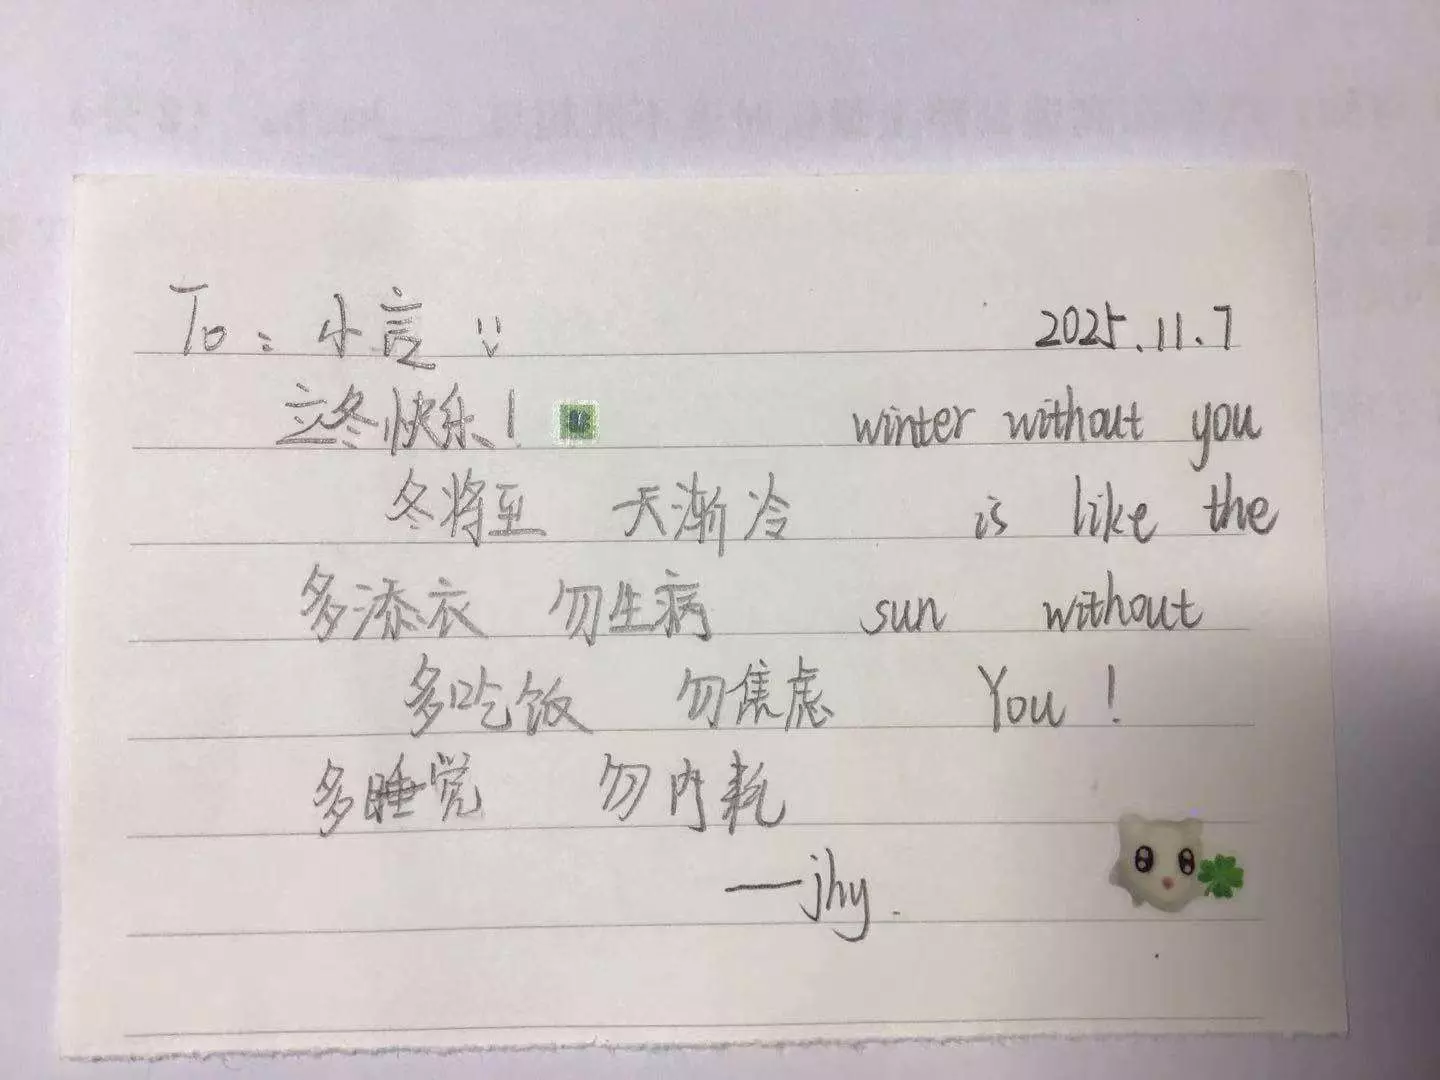 To：小言
2025.11.7
立冬快乐！
冬将至 天渐冷
多添衣 勿生病
多吃饭 勿焦虑
多睡觉 勿内耗
——jhy.
winter without you
is like the
sun without
You！